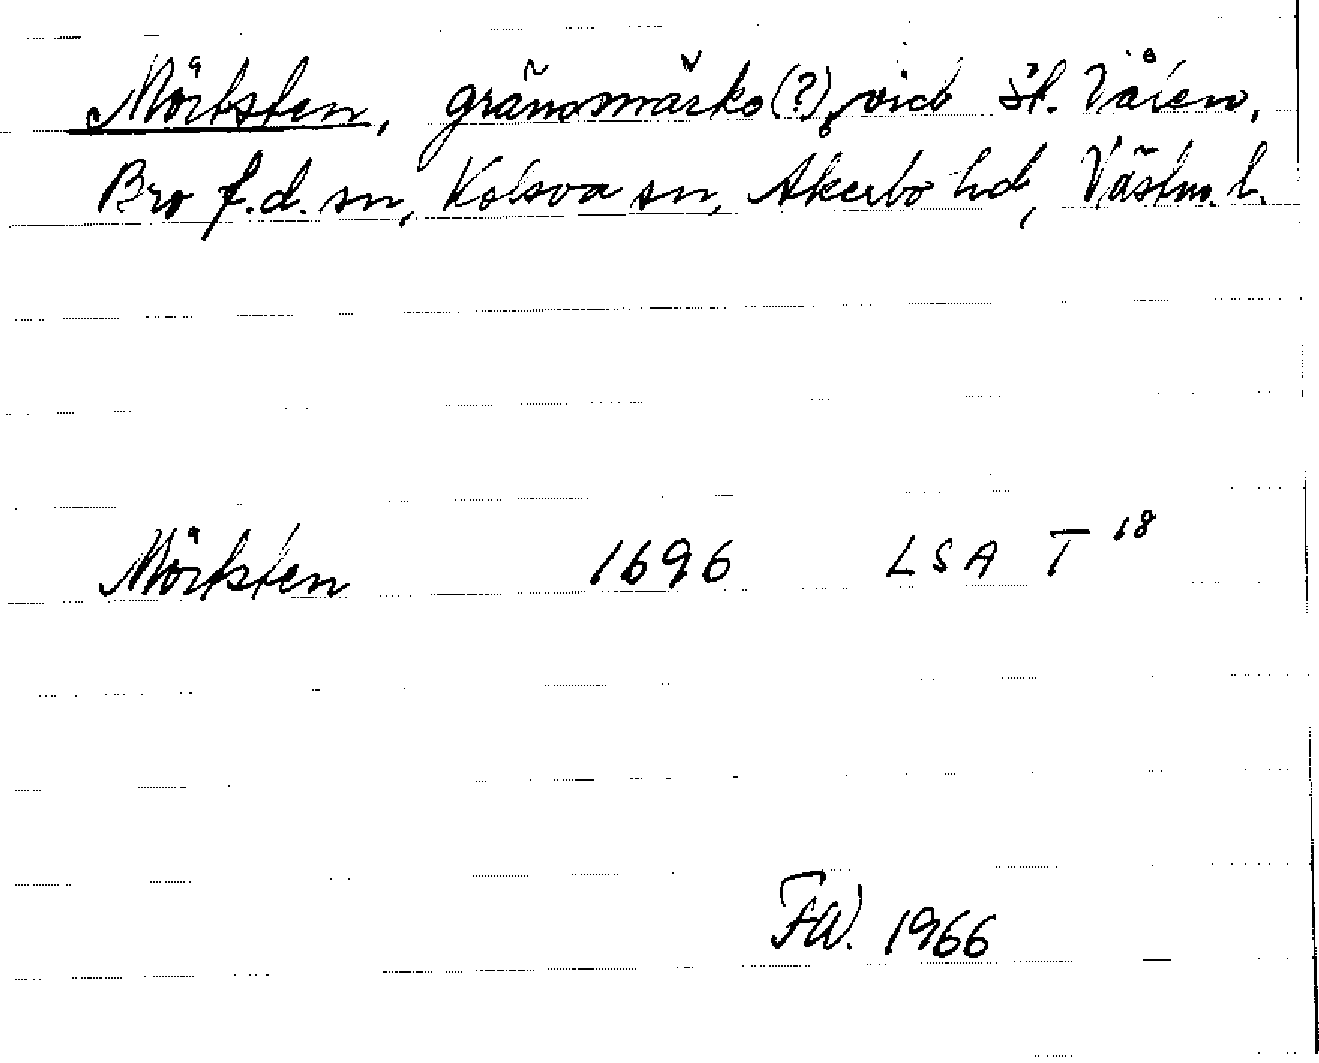 Mörksten, gränsmärke (?), vid St. Våien,
Bro f.d. sn, Kolsva sn, Åkerbo hd, Västm. l.
Mörksten 1696 LSA T 18
FW. 1966